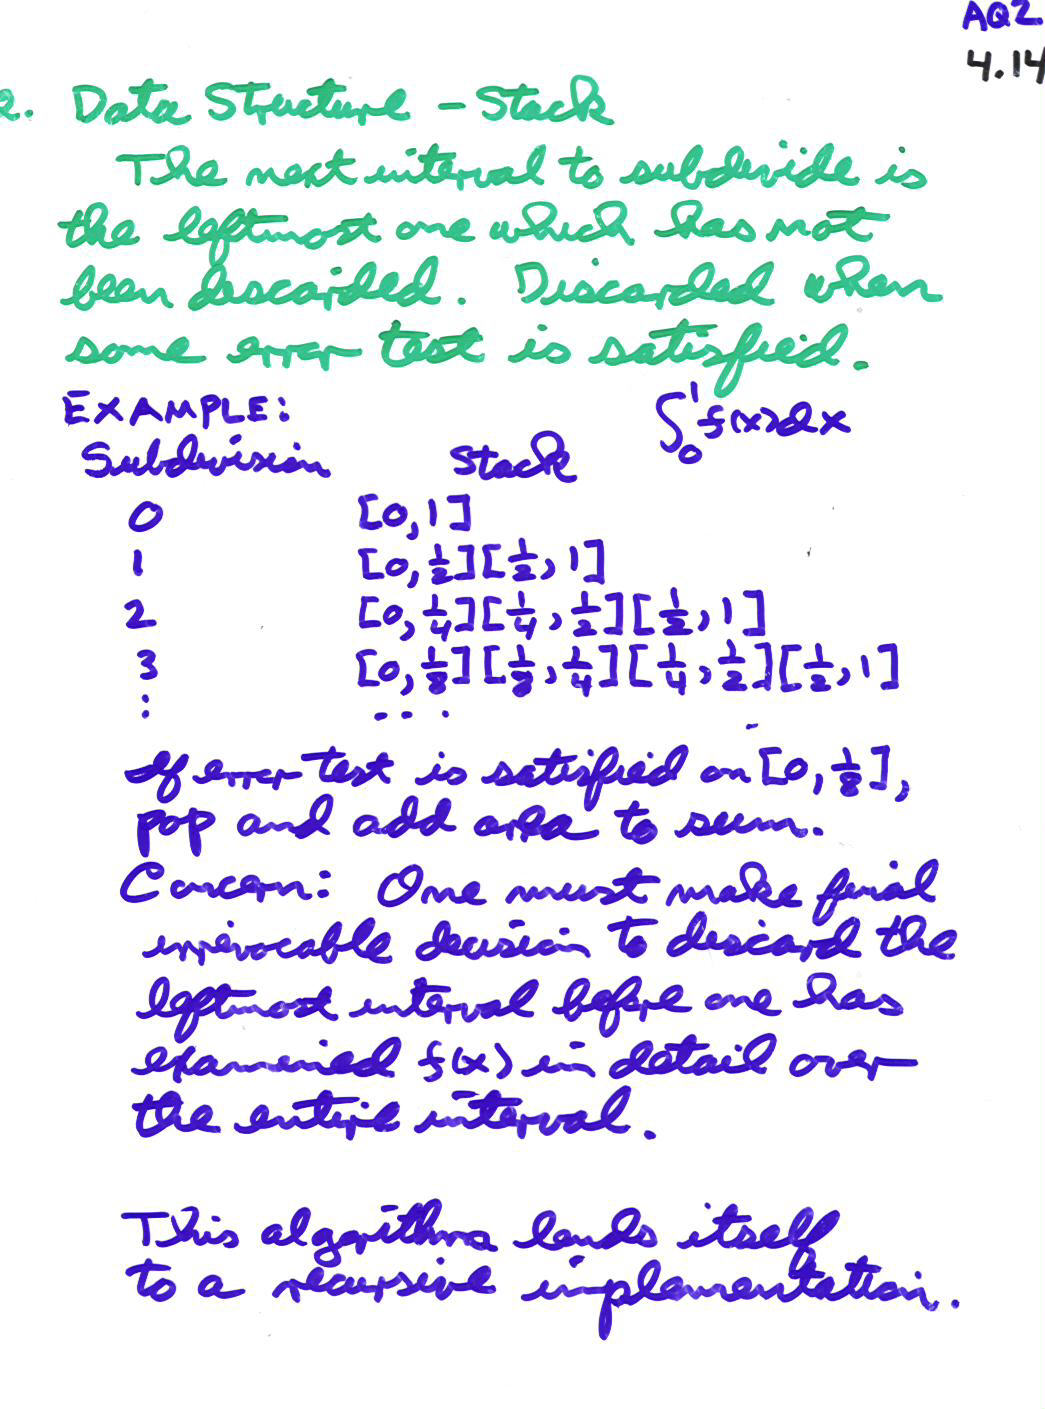 AQ2.
4.14
2. Data Structure - Stack
The next interval to subdivide is
the leftmost one which has not
been discarded. Discarded when
some error test is satisfied.
EXAMPLE: ∫₀¹ f(x)dx
Subdivision Stack
0 [0,1]
1 [0,1/2][1/2,1]
2 [0,1/4][1/4,1/2][1/2,1]
3 [0,1/8][1/8,1/4][1/4,1/2][1/2,1]
⋮ ...
If error test is satisfied on [0,1/8],
pop and add area to sum.
Concern: One must make final
irrevocable decision to discard the
leftmost interval before one has
examined f(x) in detail over
the entire interval.
This algorithm lends itself
to a recursive implementation.